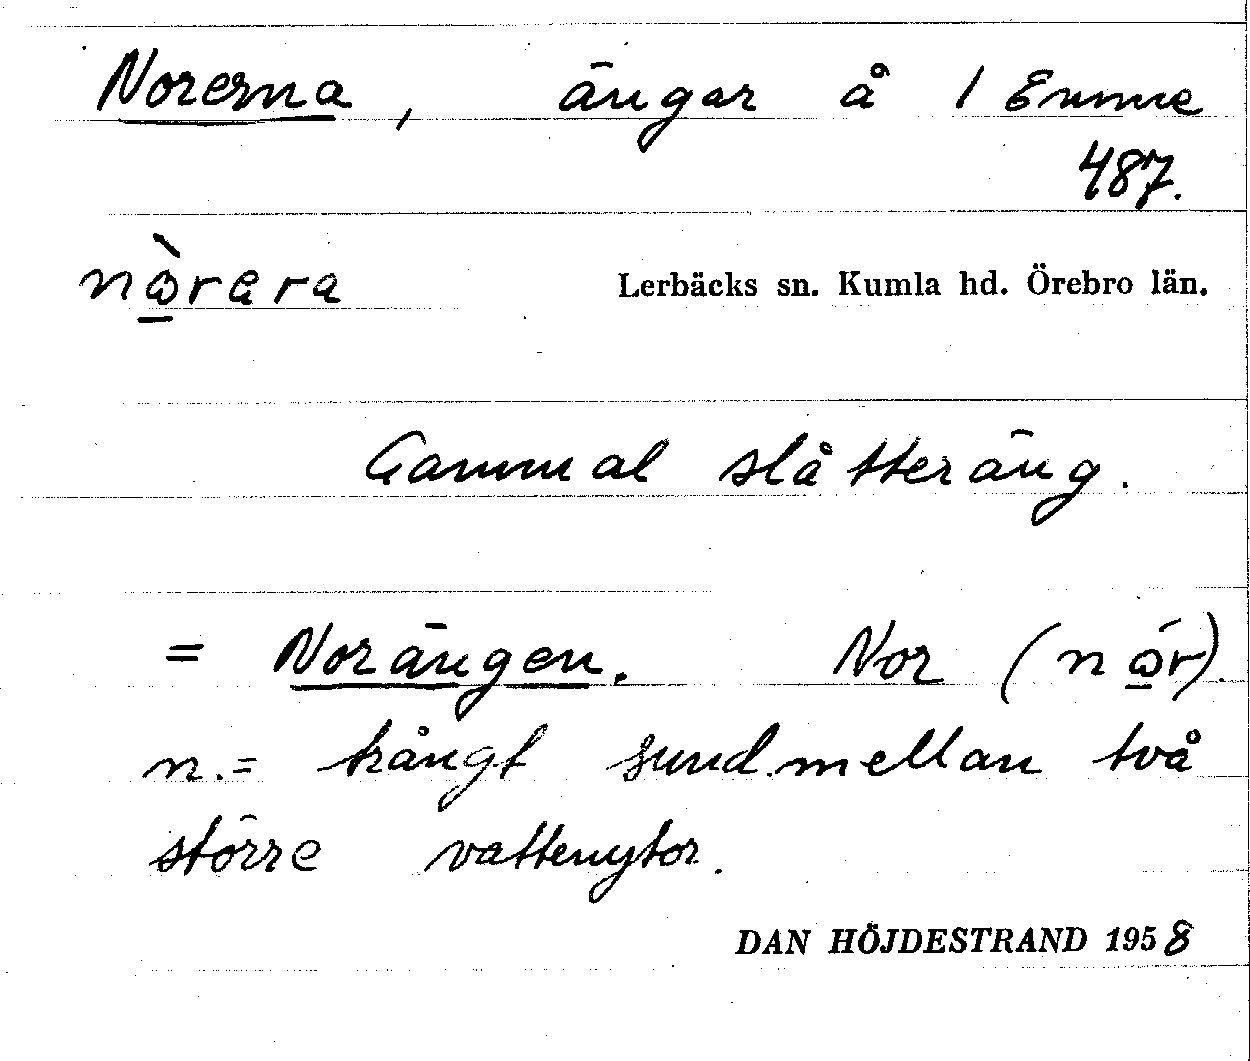 Norerna, ängar å 1 Emme
487.
nòrera Lerbäcks sn. Kumla hd. Örebro län.
Gammal slåtteräng.
= Norängen. Nor (nór).
n.= trångt sund mellan två
större vattenytor.
DAN HÖJDESTRAND 1958